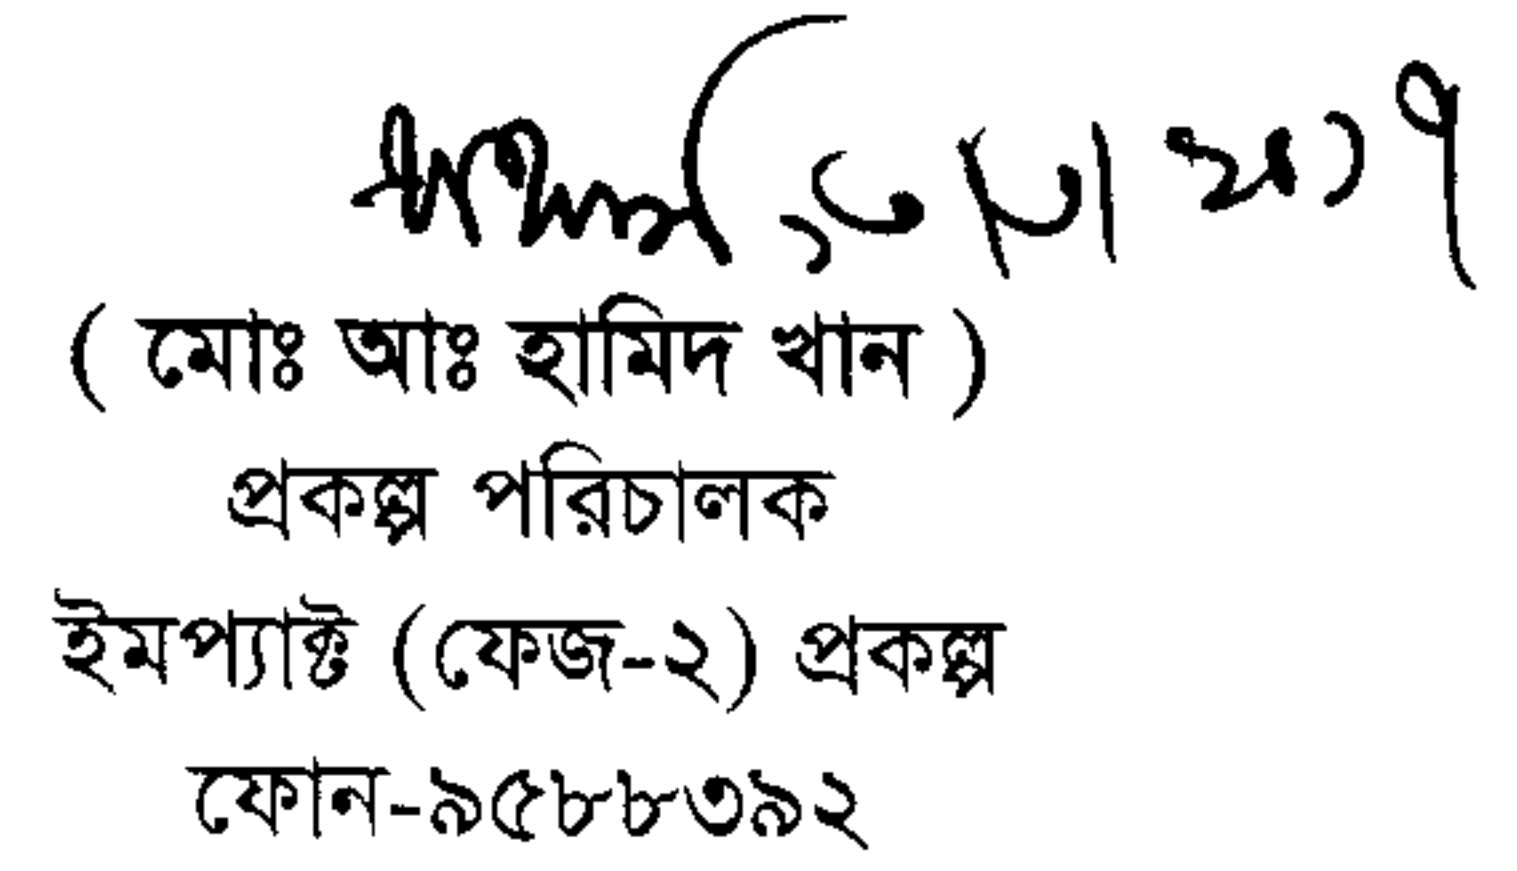 ( মোঃ আঃ হামিদ খান )
প্রকল্প পরিচালক
ইমপ্যাক্ট (ফেজ-২) প্রকল্প
ফোন-৯৫৮৮৩৯২